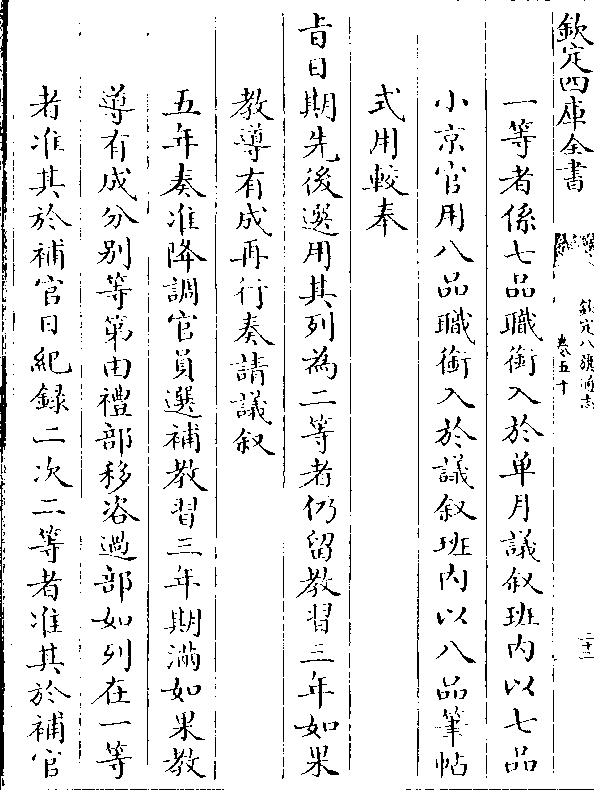 欽定四庫全書
欽定八旗通志
卷五十
二十二
一等者係七品職銜入於单月議叙班内以七品
小京官用八品職銜入於議叙班内以八品筆帖
式用較奉
㫖日期先後選用其列為二等者仍留教習三年如果
教導有成再行奏請議叙
五年奏准降調官員選補教習三年期滿如果教
導有成分别等第由禮部移咨過部如列在一等
者准其於補官日紀録二次二等者准其於補官